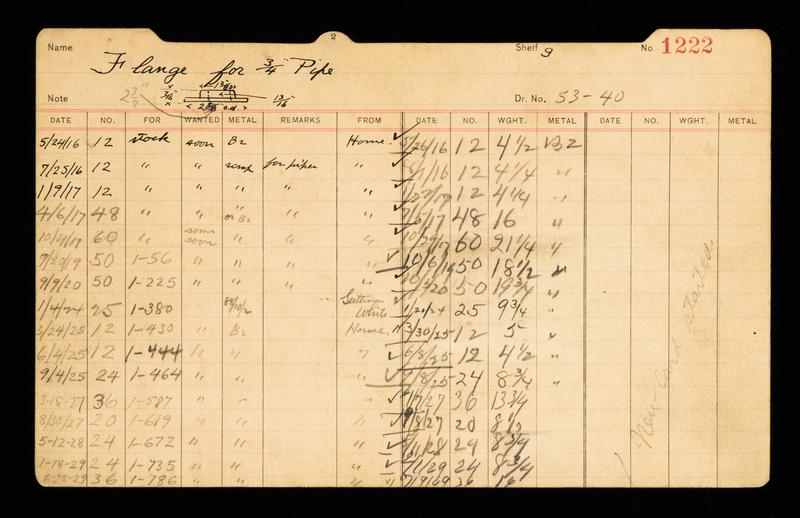 2
Name Shelf 9 No. 1222
Flange for 3/4" Pipe
Note Dr. No. 53-40
DATE NO. FOR WANTED METAL REMARKS FROM DATE NO. WGHT. METAL DATE NO. WGHT. METAL
5/24/16 12 stock soon Bz Home. ✓ 5/26/16 12 4 1/2 Bz
7/25/16 12 " " scrap for piper " ✓ 16 12 4 1/4 "
1/9/17 12 " " " " " ✓ 1/27/17 12 4 1/4 "
4/6/17 48 " " " or Bz " " ✓ 17 48 16 "
10/4/17 60 " some soon " " " ✓ 10/27/17 60 21 1/4 "
9/20/19 50 1-56 " " " " ✓ 10/6/19 50 18 1/2 "
9/9/20 50 1-225 " " " 20 50 19 3/4 "
1/4/24 25 1-380 88/10/2 White ✓ 1/20/24 25 9 3/4 "
3/24/25 12 1-430 " Bz Home " 3/30/25 12 5 "
6/4/25 12 1-444 " " " ✓ 6/8/25 12 4 1/2 "
9/4/25 24 1-464 " " " ✓ 9/8/25 24 8 3/4 "
3-18-27 36 1-587 " " " ✓ 27 36 13 3/4
8/30/27 20 1-619 " " " ✓ 9/8/27 20 8 1/2
5-12-28 24 1-672 " " " ✓ 28 24 8 3/4
1-18-29 24 1-735 " " " ✓ 29 24 8 3/4
29 36 1-786 " " " 36 16
New Card started.